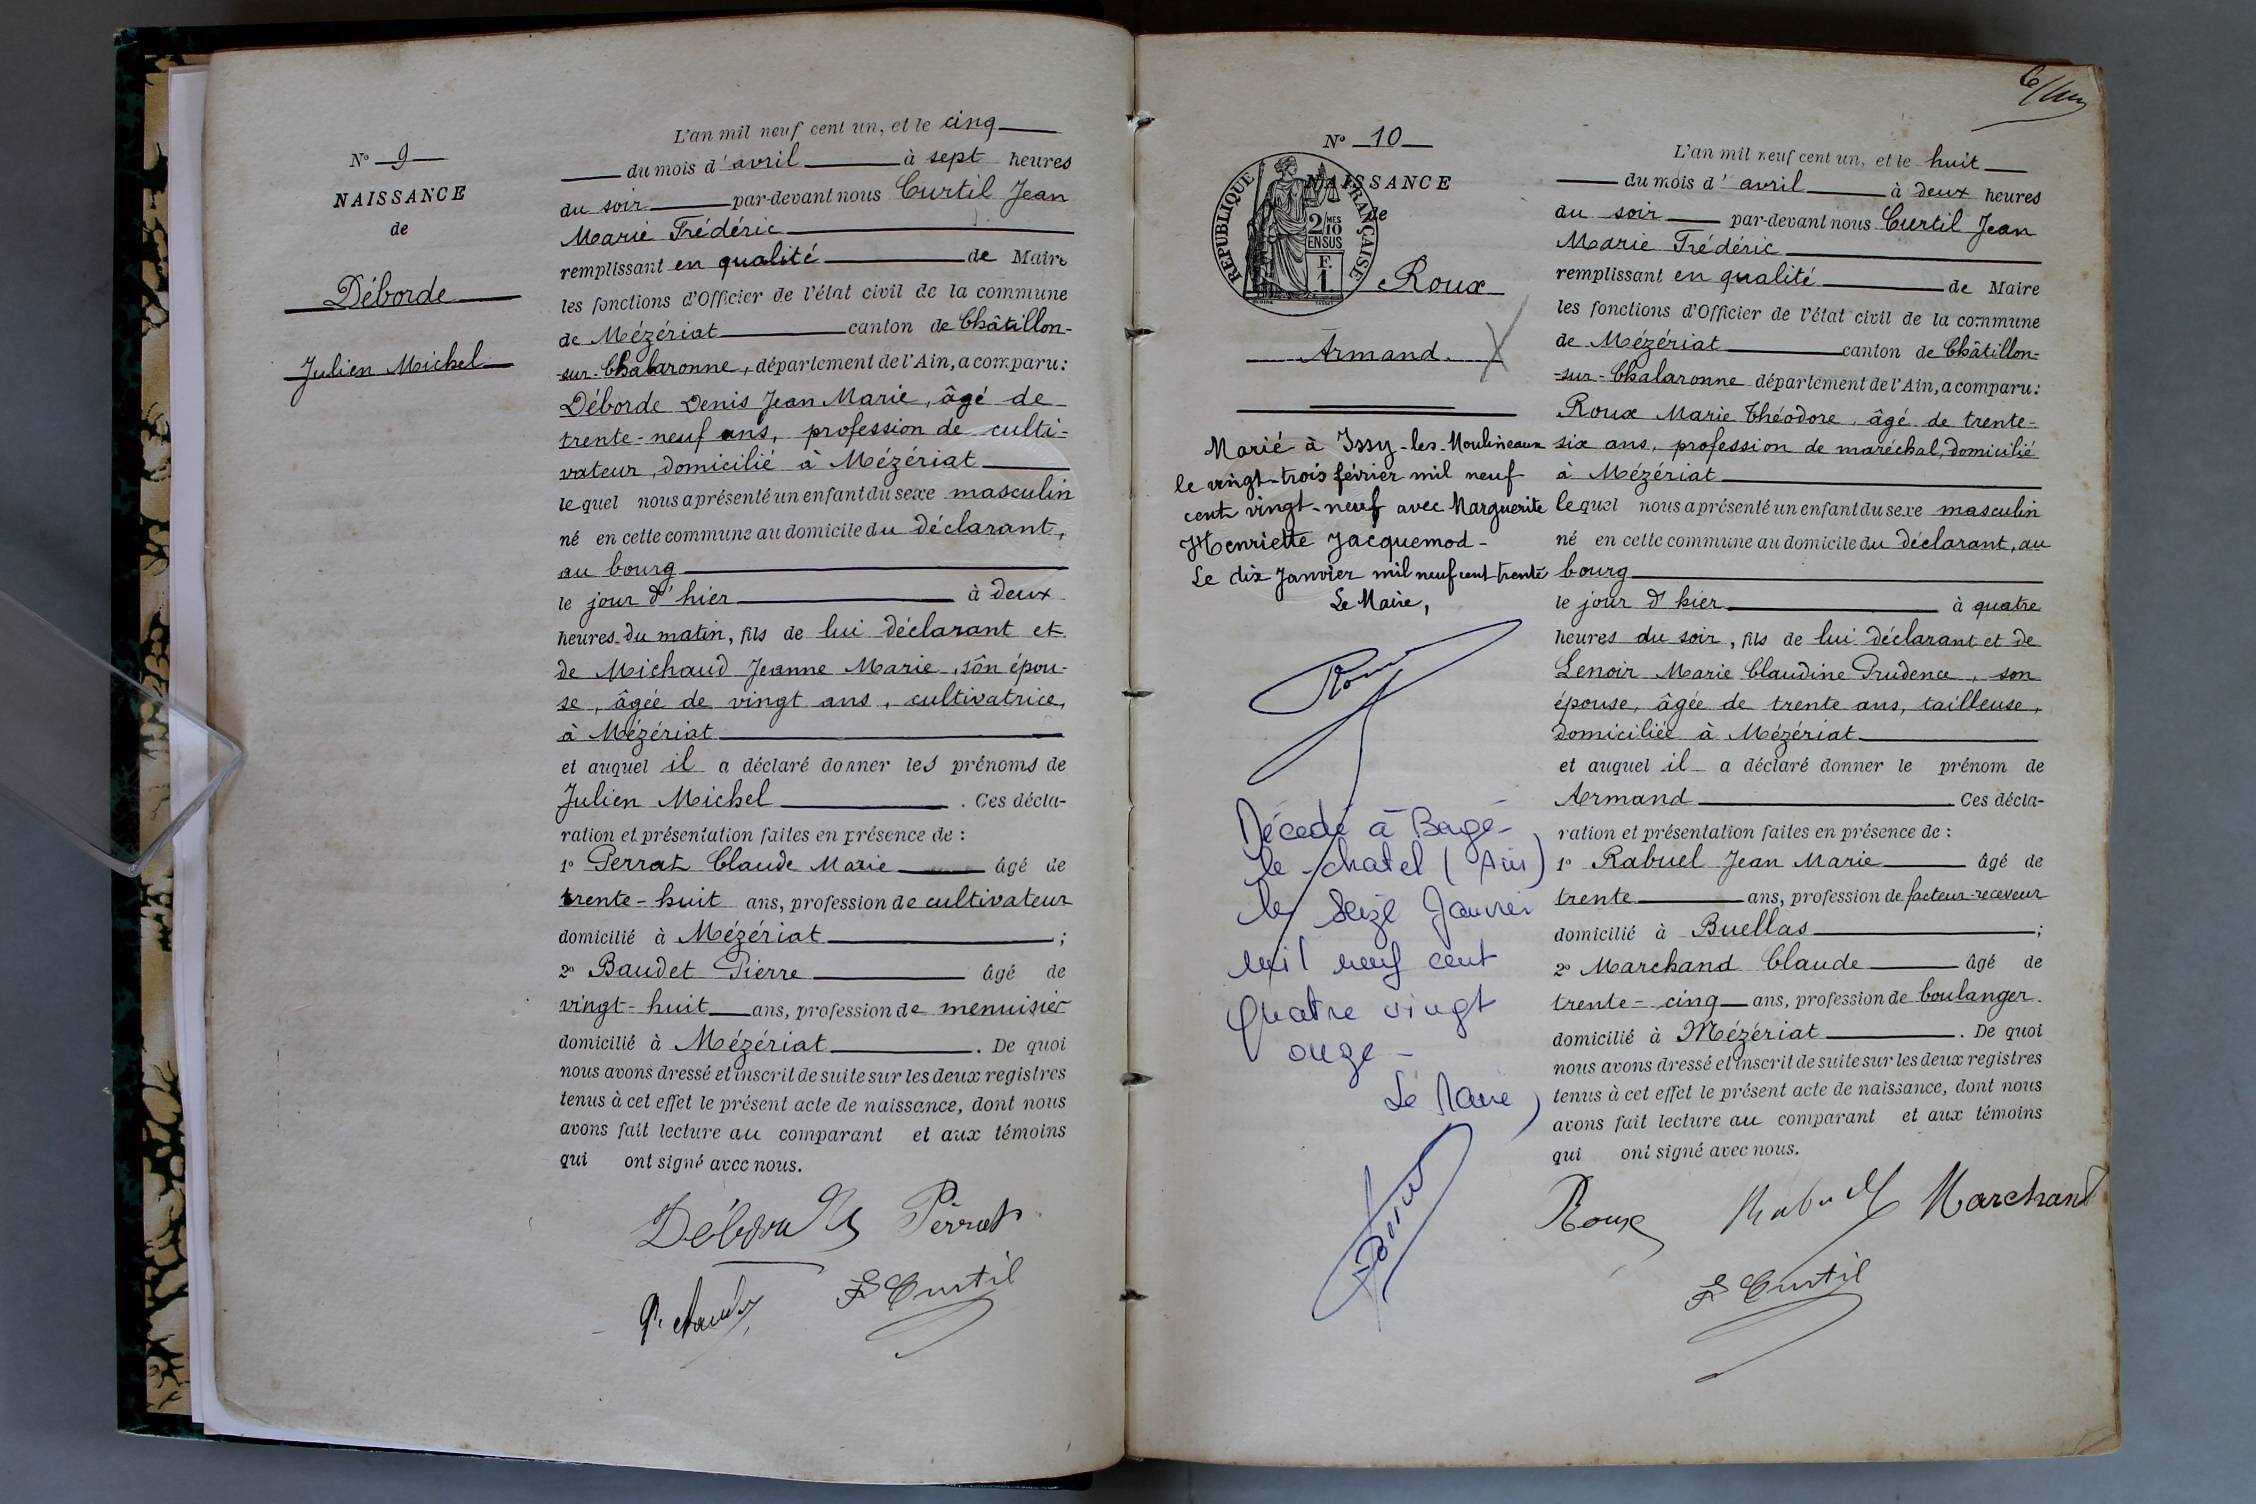 N° 9
NAISSANCE
de
Déborde
Julien Michel
L'an mil neuf cent un, et le cinq
du mois d'avril à sept heures
du soir par-devant nous Curtil Jean
Marie Frédéric
remplissant en qualité de Maire
les fonctions d'Officier de l'état civil de la commune
de Mézériat canton de Châtillon-
-sur-Chalaronne, département de l'Ain, a comparu:
Déborde Denis Jean Marie, âgé de
trente-neuf ans, profession de culti-
vateur, domicilié à Mézériat
lequel nous a présenté un enfant du sexe masculin
né en cette commune au domicile du déclarant,
au bourg
le jour d'hier à deux
heures du matin, fils de lui déclarant et
de Michaud Jeanne Marie, son épou-
se, âgée de vingt ans, cultivatrice,
à Mézériat
et auquel il a déclaré donner les prénoms de
Julien Michel. Ces décla-
ration et présentation faites en présence de :
1° Perrat Claude Marie âgé de
trente-huit ans, profession de cultivateur
domicilié à Mézériat ;
2° Baudet Pierre âgé de
vingt-huit ans, profession de menuisier
domicilié à Mézériat. De quoi
nous avons dressé et inscrit de suite sur les deux registres
tenus à cet effet le présent acte de naissance, dont nous
avons fait lecture au comparant et aux témoins
qui ont signé avec nous.
Perrat
F Curtil
N° 10
NAISSANCE
de
REPUBLIQUE FRANÇAISE
2/10 MES
EN SUS
F.
1.
Roux
Armand.
Marié à Issy-les-Moulineaux
le vingt-trois février mil neuf
cent vingt-neuf avec Marguerite
Henriette Jacquemod-
Le dix Janvier mil neuf cent trente
Le Maire,
Décédé à Bagé-
le-chatel (Ain)
le seize Janvier
mil neuf cent
quatre vingt
onze-
Le Maire,
L'an mil neuf cent un, et le huit
du mois d'avril à deux heures
du soir par-devant nous Curtil Jean
Marie Frédéric
remplissant en qualité de Maire
les fonctions d'Officier de l'état civil de la commune
de Mézériat canton de Châtillon-
-sur-Chalaronne département de l'Ain, a comparu:
Roux Marie Théodore, âgé de trente-
six ans, profession de maréchal, domicilié
à Mézériat
lequel nous a présenté un enfant du sexe masculin
né en cette commune au domicile du déclarant, au
bourg
le jour d'hier à quatre
heures du soir, fils de lui déclarant et de
Lenoir Marie Claudine Prudence, son
épouse, âgée de trente ans, tailleuse,
domiciliée à Mézériat
et auquel il a déclaré donner le prénom de
Armand Ces décla-
ration et présentation faites en présence de :
1° Rabuel Jean Marie âgé de
trente ans, profession de facteur-receveur
domicilié à Buellas ;
2° Marchand Claude âgé de
trente-cinq ans, profession de boulanger
domicilié à Mézériat. De quoi
nous avons dressé et inscrit de suite sur les deux registres
tenus à cet effet le présent acte de naissance, dont nous
avons fait lecture au comparant et aux témoins
qui ont signé avec nous.
Roux Rabuel Marchand
F Curtil